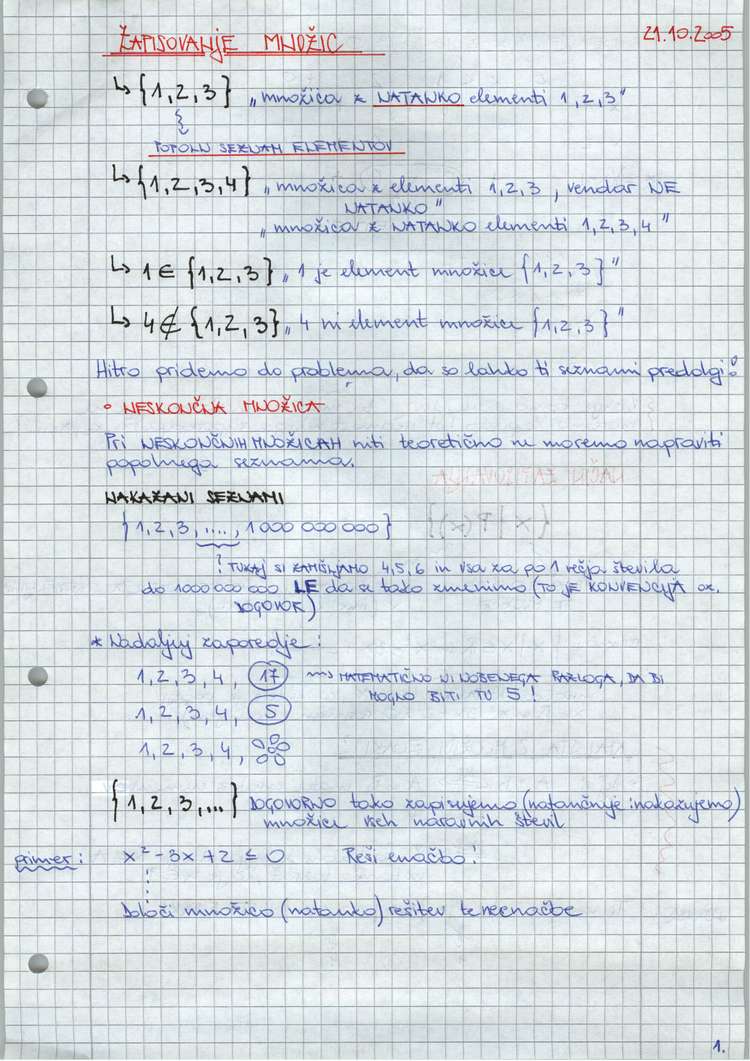 ZAPISOVANJE MNOŽIC 21.10.2005
↳ {1,2,3} „množica z NATANKO elementi 1,2,3"
POPOLN SEZNAM ELEMENTOV
↳ {1,2,3,4} „množica z elementi 1,2,3, vendar NE
NATANKO"
„množica z NATANKO elementi 1,2,3,4"
↳ 1 ∈ {1,2,3} „1 je element množice {1,2,3}"
↳ 4 ∉ {1,2,3} „4 ni element množice {1,2,3}"
Hitro pridemo do problema, da so lahko ti seznami predolgi!
• NESKONČNA MNOŽICA
Pri NESKONČNIH MNOŽICAH niti teoretično ne moremo napraviti
popolnega seznama.
NAKAZANI SEZNAMI
{1,2,3,....,1000 000 000}
? TUKAJ SI ZAMIŠLJAMO 4,5,6 in vsa za po 1 večja števila
do 1000 000 000 LE da se tako zmenimo (TO JE KONVENCIJA oz.
DOGOVOR)
* Nadaljuj zaporedje:
1,2,3,4, 17 MATEMATIČNO NI NOBENEGA RAZLOGA, DA BI
MOGLO BITI TU 5!
1,2,3,4, 5
1,2,3,4,
{1,2,3,...} DOGOVORNO tako zapisujemo (natančneje: nakazujemo)
množico vseh naravnih števil
primer: x² - 3x + 2 ≤ 0 Reši enačbo!
Določi množico (natanko) rešitev te neenačbe
1.